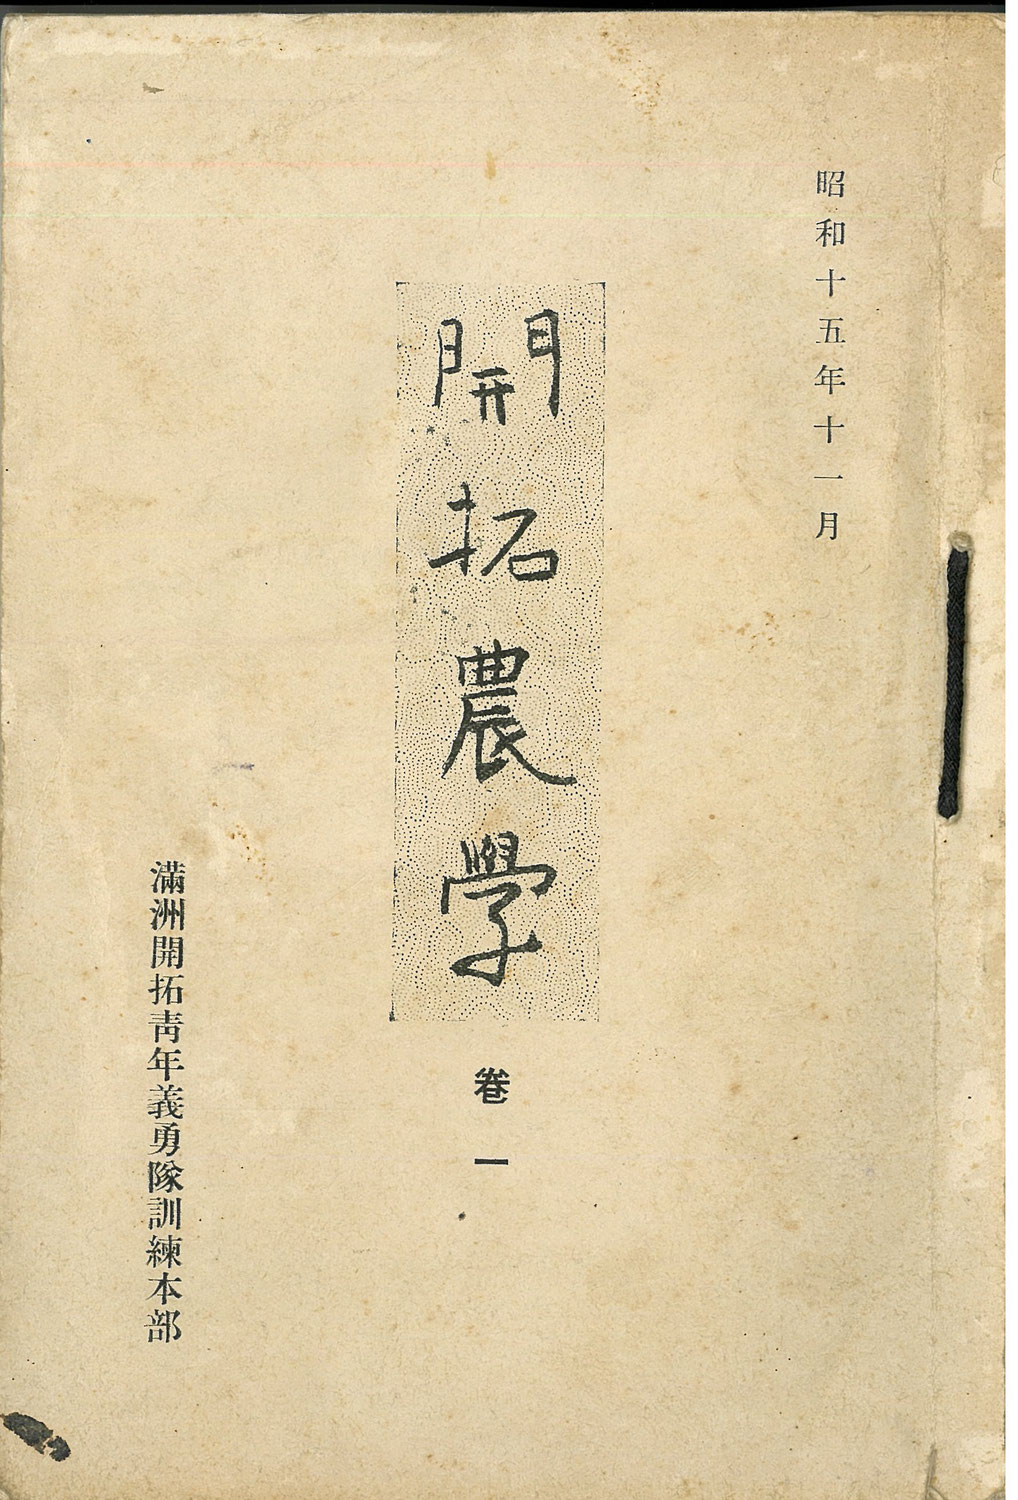 昭和十五年十一月
開拓農學
卷一
滿洲開拓靑年義勇隊訓練本部